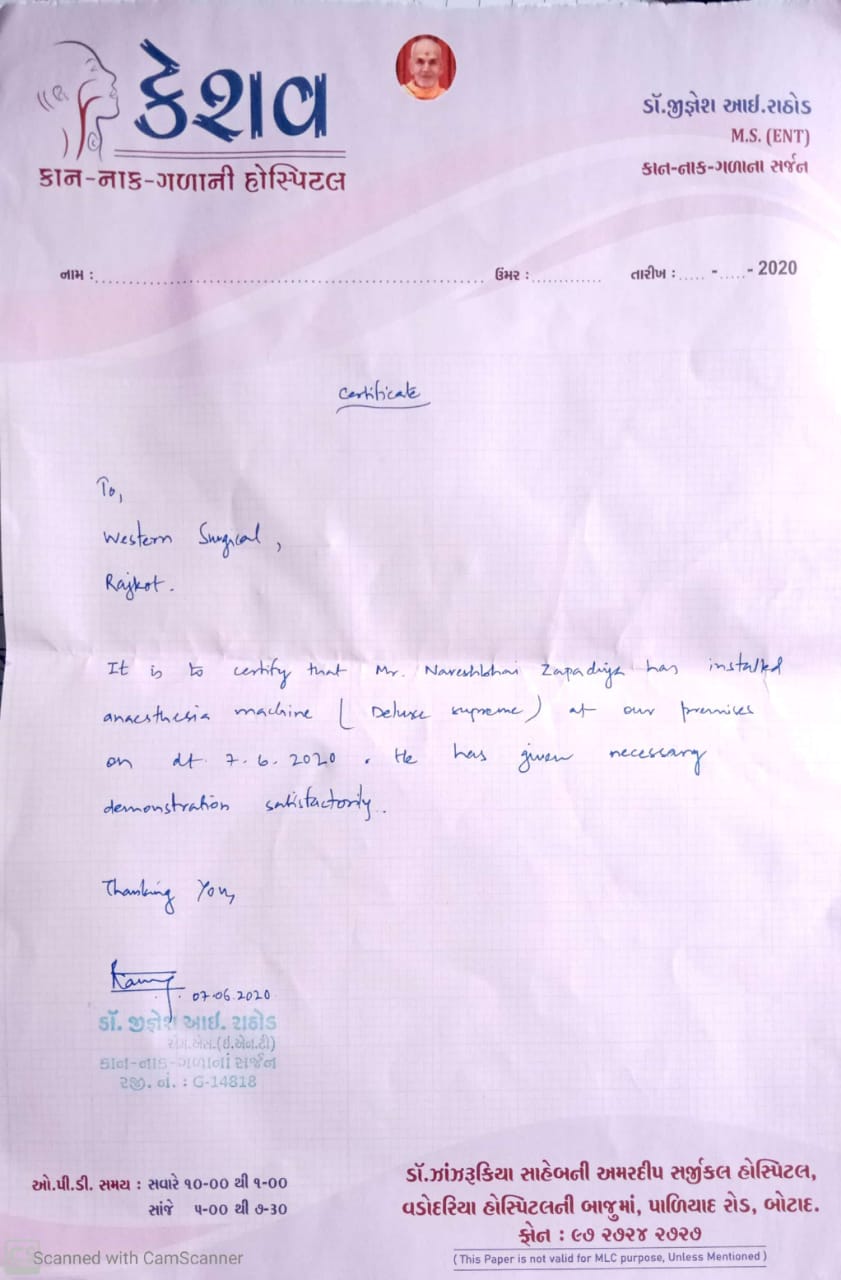 કેશવ
કાન-નાક-ગળાની હોસ્પિટલ
ડૉ.જીજ્ઞેશ આઈ.રાઠોડ
M.S. (ENT)
કાન-નાક-ગળાના સર્જન
નામ : ઉંમર : તારીખ : ..... - ..... - 2020
Certificate
To,
Western Surgical,
Rajkot.
It is to certify that Mr. Nareshbhai Zapadiya has installed
anaesthesia machine ( Deluxe supreme) at our premises
on dt. 7.6.2020. He has given necessary
demonstration satisfactorily.
Thanking You,
07.06.2020
ડૉ. જીજ્ઞેશ આઈ. રાઠોડ
એમ.એસ.(ઈ.એન.ટી)
કાન-નાક-ગળાનાં સર્જન
રજી. નં. : G-14818
ઓ.પી.ડી. સમય : સવારે ૧૦-૦૦ થી ૧-૦૦
સાંજે ૫-૦૦ થી ૭-૩૦
ડૉ.ઝાંઝરૂકિયા સાહેબની અમરદીપ સર્જીકલ હોસ્પિટલ,
વડોદરિયા હોસ્પિટલની બાજુમાં, પાળિયાદ રોડ, બોટાદ.
ફોન : ૯૭ ૨૭૨૪ ૨૭૨૭
(This Paper is not valid for MLC purpose, Unless Mentioned)
CS Scanned with CamScanner